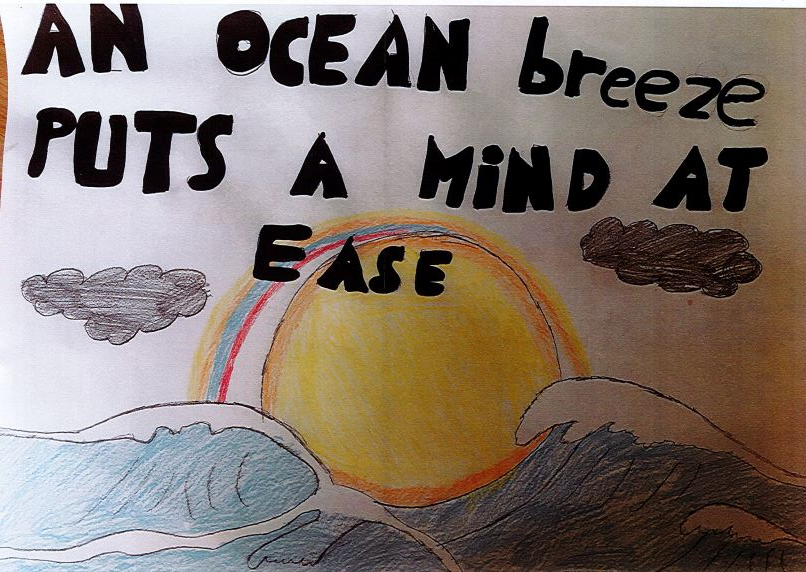 AN OCEAN breeze
PUTS A MiND AT
EASE